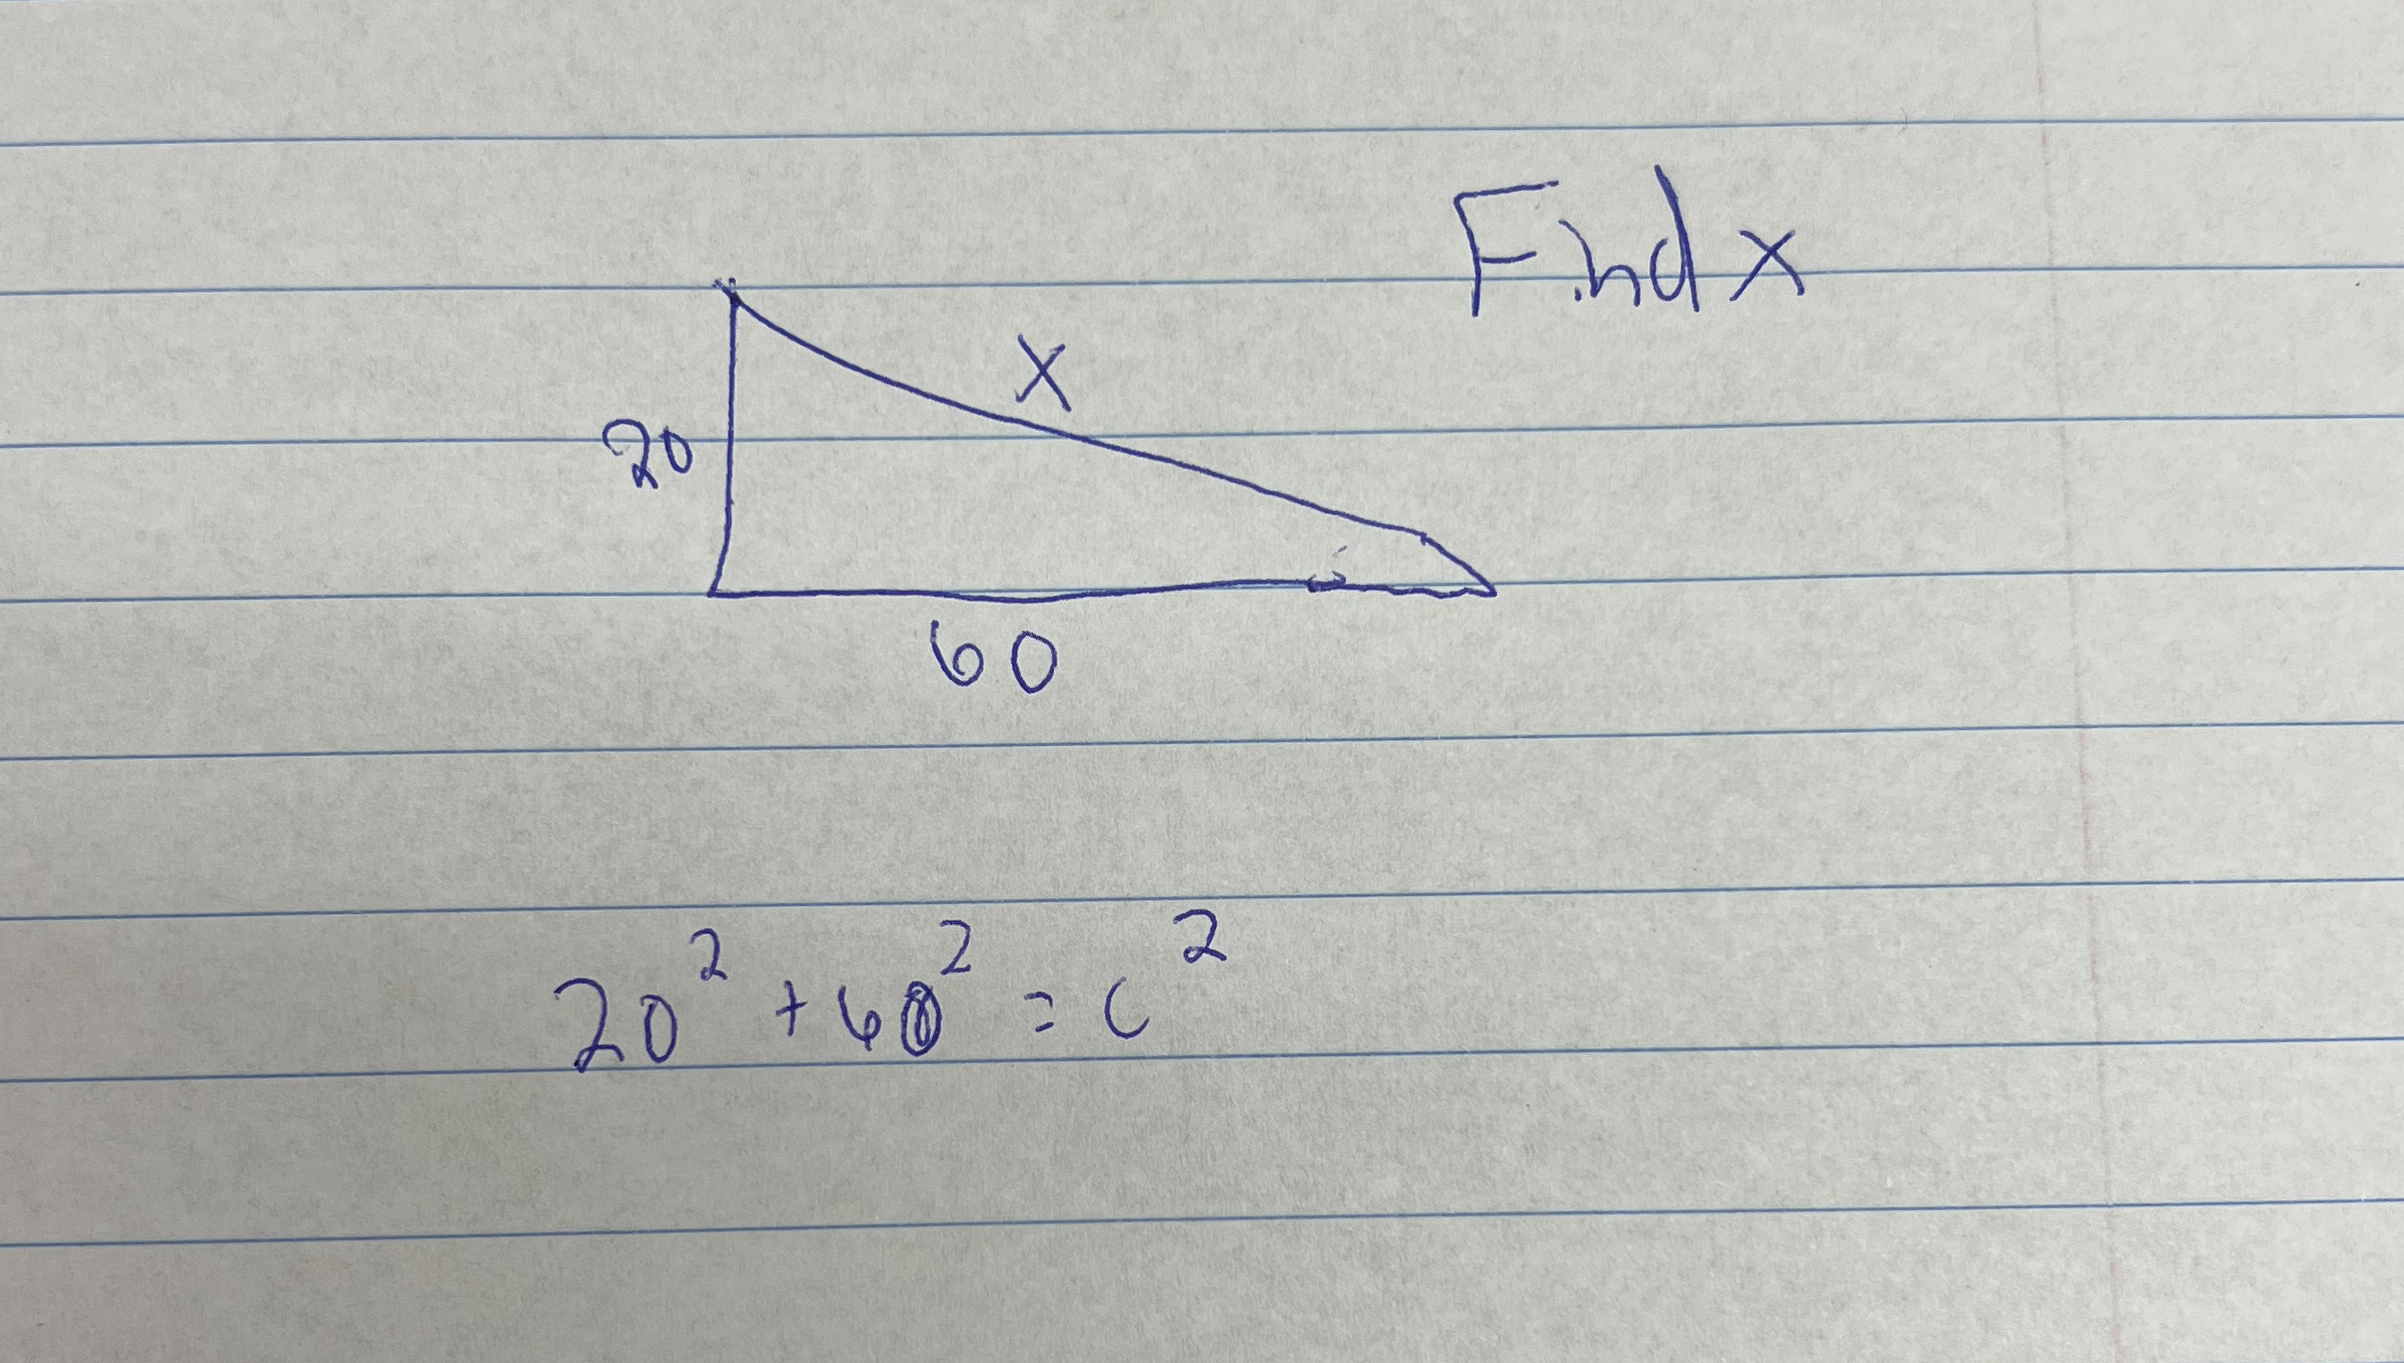 Find x
x
20
60
20² + 60² = c²